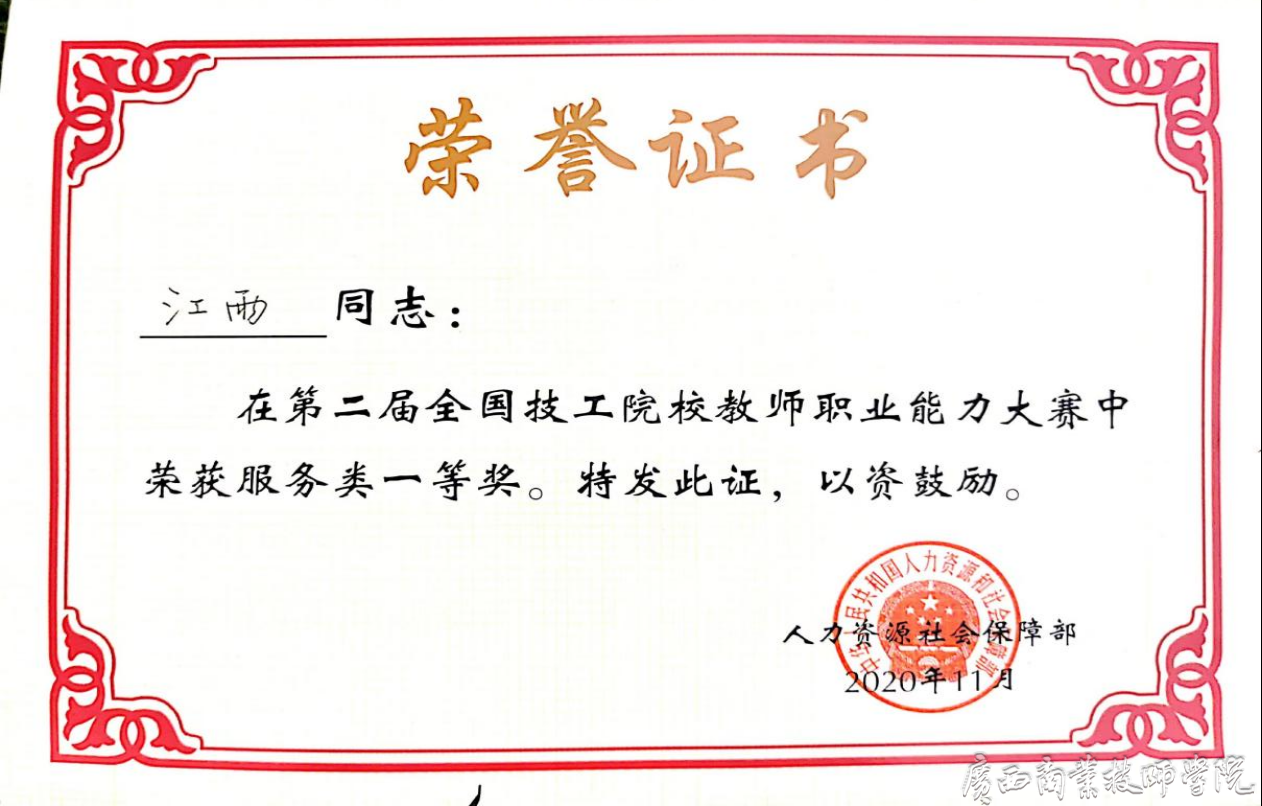 荣誉证书
江西 同志：
在第二届全国技工院校教师职业能力大赛中
荣获服务类一等奖。特发此证，以资鼓励。
中华人民共和国人力资源和社会保障部
人力资源社会保障部
2020年11月
广西商业技师学院